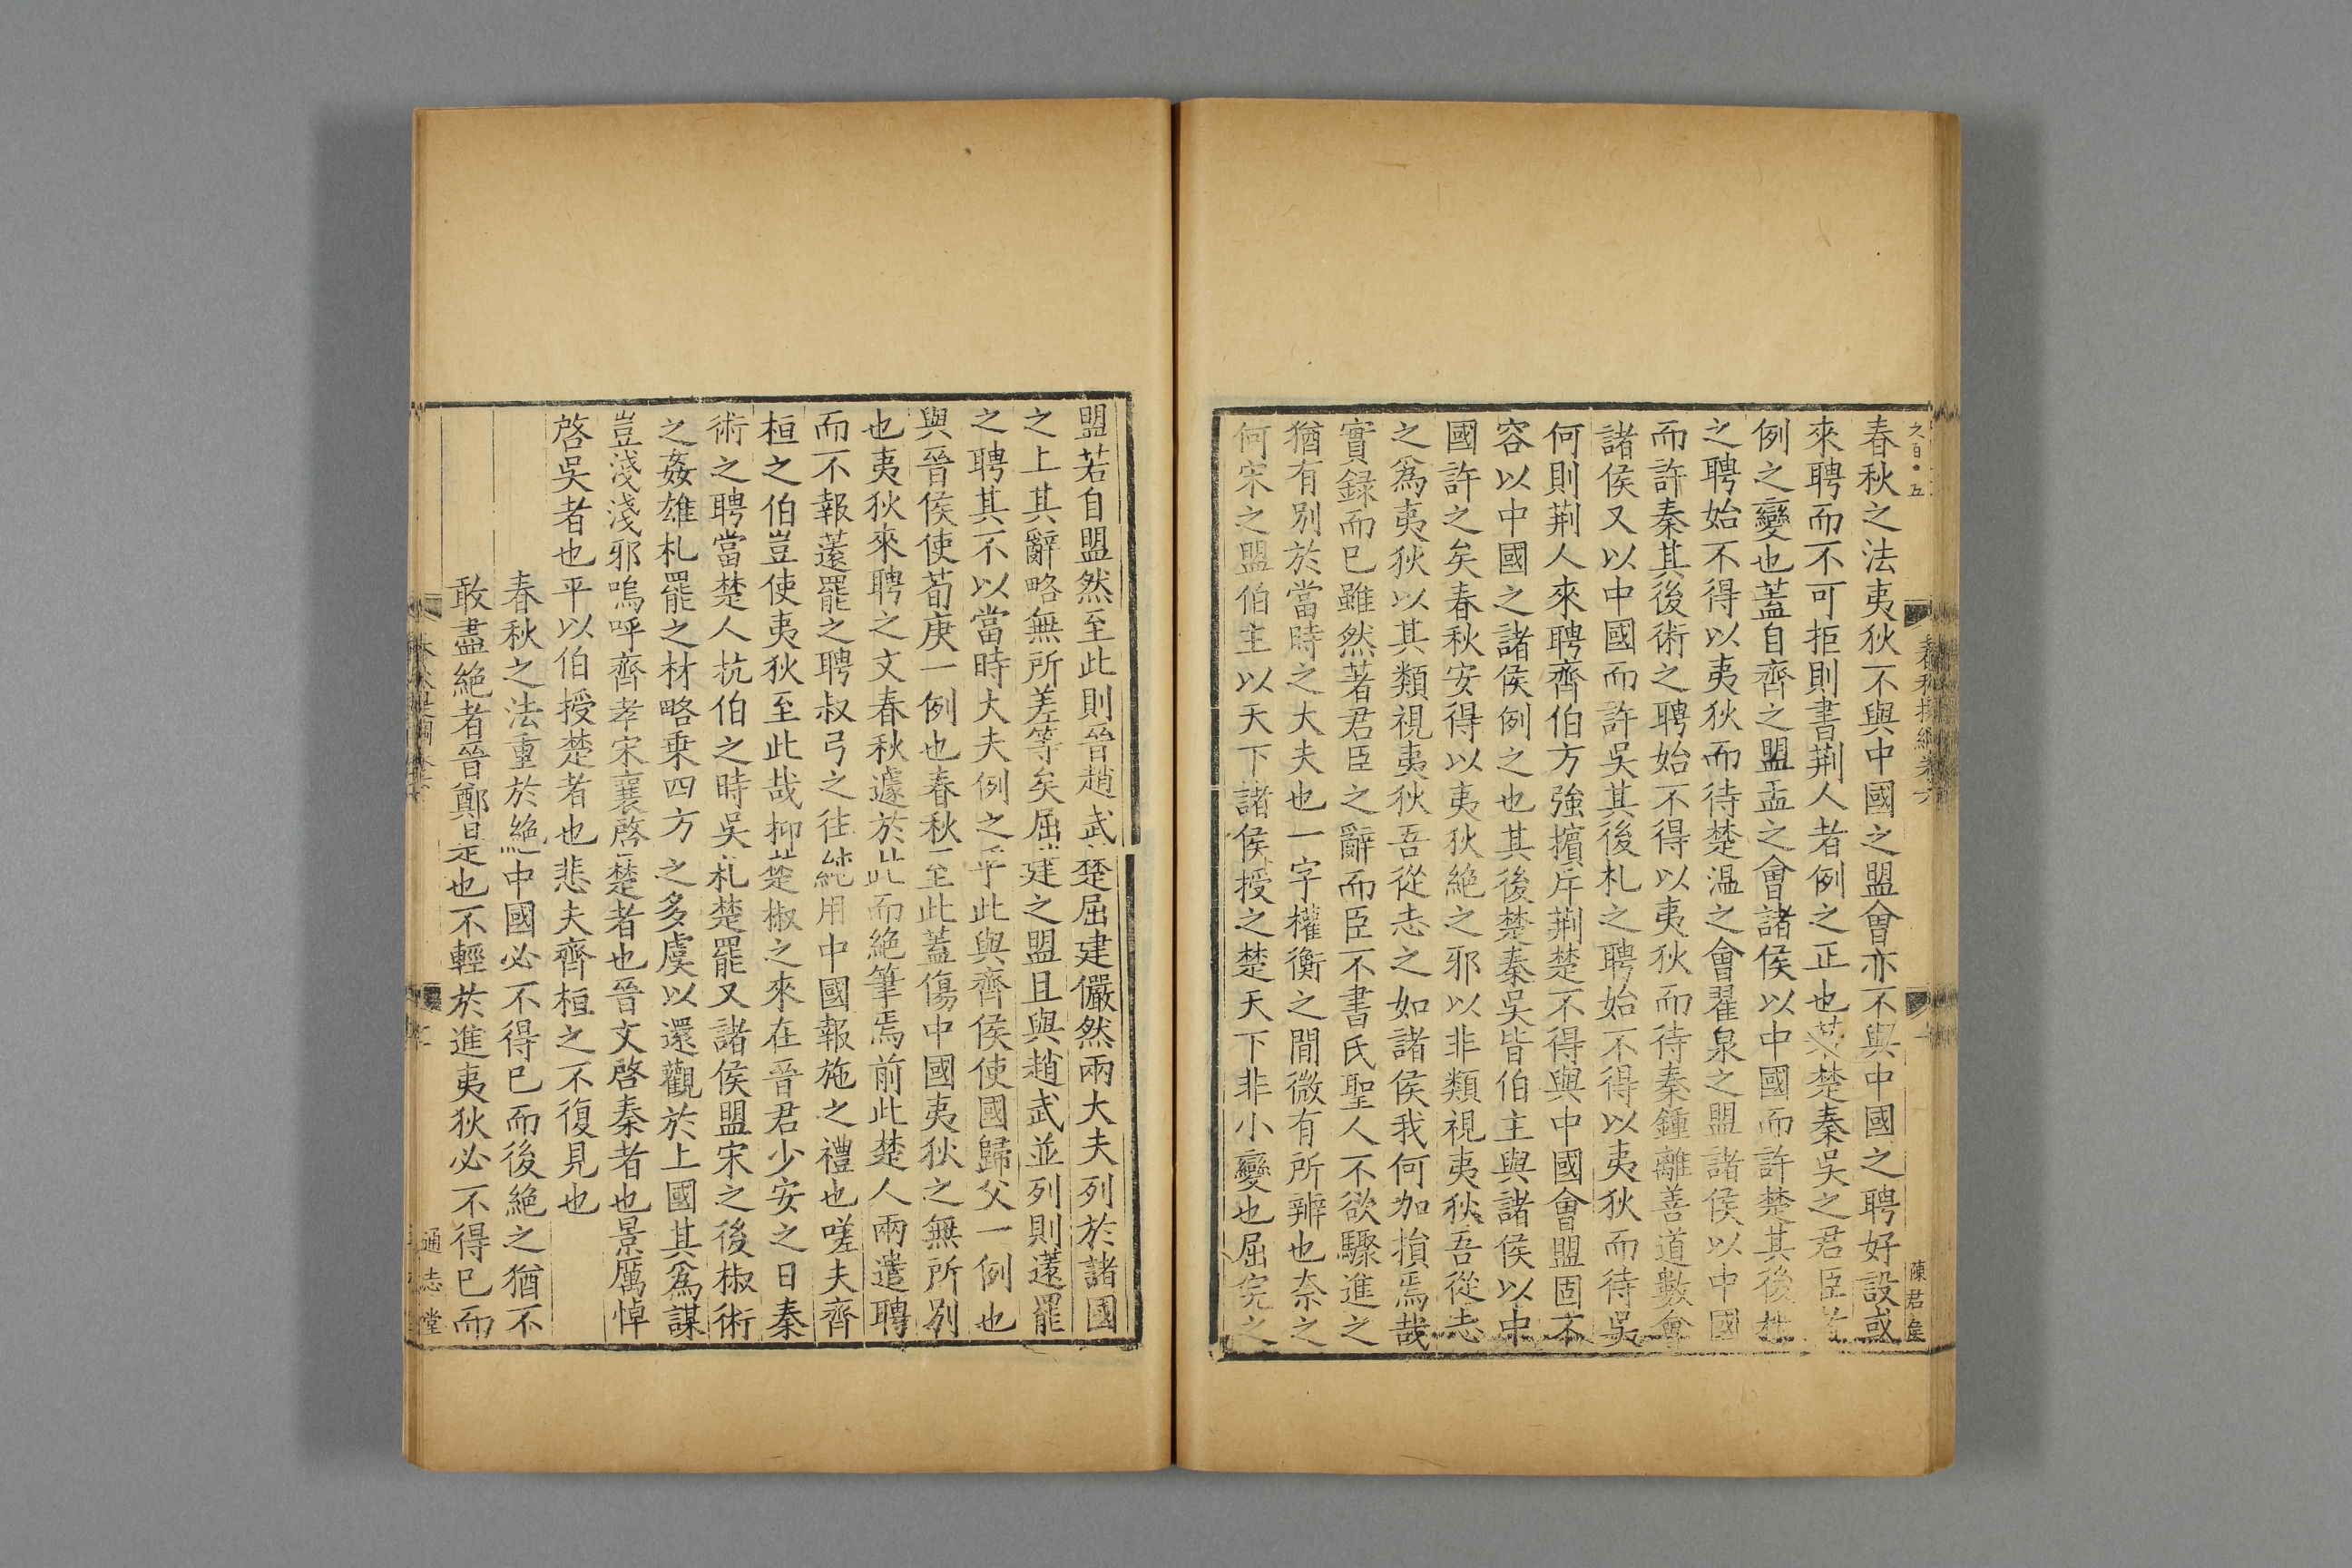 春秋之法夷狄不與中國之盟會亦不與中國之聘好設或
來聘而不可拒則書荆人者例之正也若楚秦吳之君臣
例之變也葢自齊之盟盂之會諸侯以中國而許楚其後椒
之聘始不得以夷狄而待楚温之會翟泉之盟諸侯以中國
而許秦其後術之聘始不得以夷狄而待秦鍾離善道數會
諸侯又以中國而許吳其後札之聘始不得以夷狄而待吳
何則荆人來聘齊伯方強擯斥荆楚不得與中國會盟固不
容以中國之諸侯例之也其後楚秦吳皆伯主與諸侯以中
國許之矣春秋安得以夷狄絶之邪以非類視夷狄吾從志
之爲夷狄以其類視夷狄吾從志之如諸侯我何加損焉哉
實録而已雖然著君臣之辭而臣不書氏聖人不欲驟進之
猶有别於當時之大夫也一字權衡之間微有所辨也奈之
何宋之盟伯主以天下諸侯授之楚天下非小變也屈完之
盟若自盟然至此則晉趙武楚屈建儼然兩大夫列於諸國
之上其辭略無所差等矣屈建之盟且與趙武並列則薳罷
之聘其不以當時大夫例之乎此與齊侯使國歸父一例也
與晉侯使荀庚一例也春秋至此蓋傷中國夷狄之無所别
也夷狄來聘之文春秋遽於此而絶筆焉前此楚人兩遣聘
而不報薳罷之聘叔弓之往純用中國報施之禮也嗟夫齊
桓之伯豈使夷狄至此哉抑楚椒之來在晉君少安之日秦
術之聘當楚人抗伯之時吳札楚罷又諸侯盟宋之後椒術
之姦雄札罷之材略乗四方之多虞以還觀於上國其爲謀
豈淺淺邪嗚呼齊孝宋襄啓楚者也晉文啓秦者也景厲悼
啓吳者也平以伯授楚者也悲夫齊桓之不復見也
春秋之法重於絶中國必不得已而後絶之猶不
敢盡絶者晉鄭是也不輕於進夷狄必不得已而
春秋提綱卷六
陳君矦
通志堂